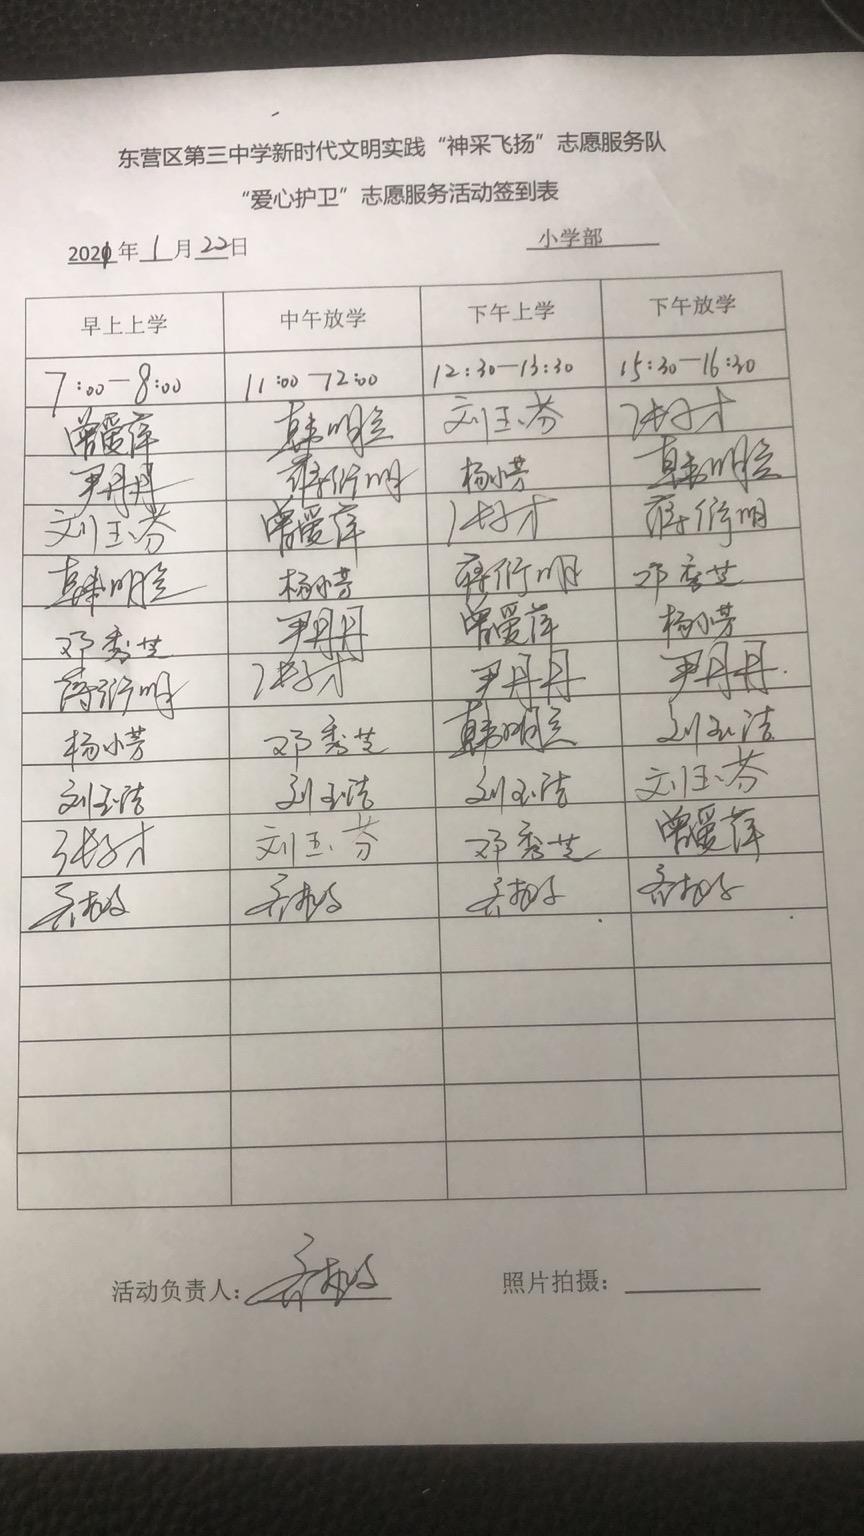 东营区第三中学新时代文明实践“神采飞扬”志愿服务队
“爱心护卫”志愿服务活动签到表
2021年1月22日 小学部
早上上学 中午放学 下午上学 下午放学
7:00—8:00 11:00—12:00 12:30—13:30 15:30—16:30
曾爱萍 韩明 刘玉芬 张子才
尹丹丹 蒋衍明 杨小芳 韩明
刘玉芬 曾爱萍 张子才 蒋衍明
韩明 杨小芳 蒋衍明 邓秀芝
邓秀芝 尹丹丹 曾爱萍 杨小芳
蒋衍明 张子才 尹丹丹 尹丹丹
杨小芳 邓秀芝 韩明 刘玉洁
刘玉洁 刘玉洁 刘玉洁 刘玉芬
张子才 刘玉芬 邓秀芝 曾爱萍
活动负责人: 照片拍摄: